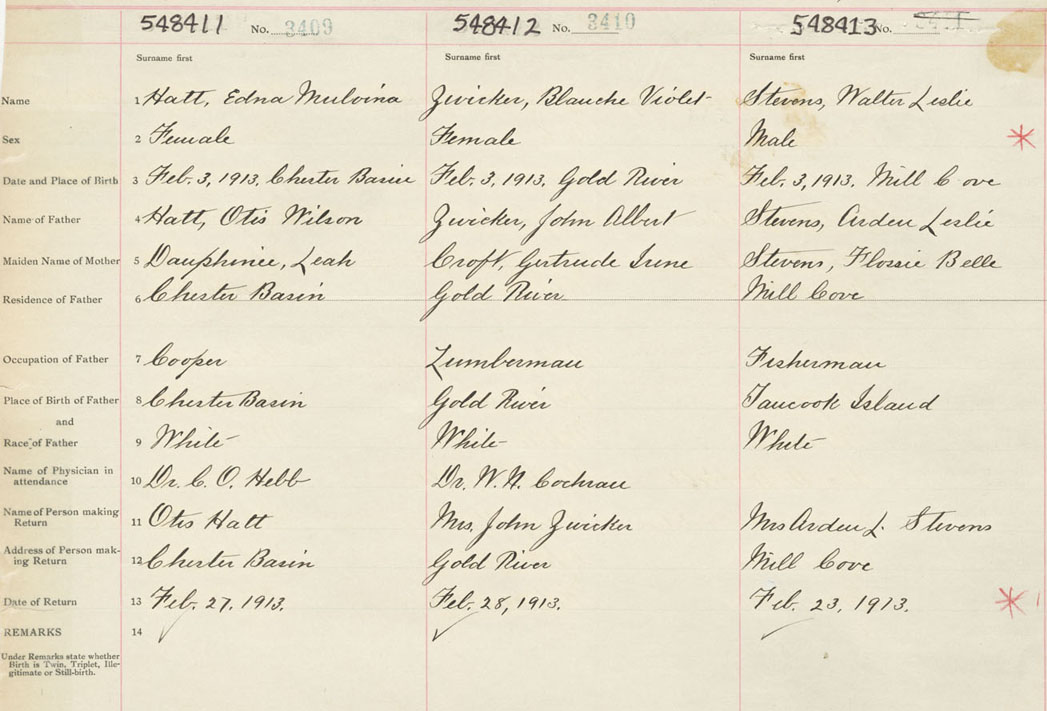 548411 No. 3409 548412 No. 3410 548413 No.
Surname first Surname first Surname first
Name 1 Hatt, Edna Mulvina Zwicker, Blanche Violet Stevens, Walter Leslie
Sex 2 Female Female Male
Date and Place of Birth 3 Feb. 3, 1913. Chester Basin Feb. 3, 1913. Gold River Feb. 3, 1913. Mill Cove
Name of Father 4 Hatt, Otis Wilson Zwicker, John Albert Stevens, Arden Leslie
Maiden Name of Mother 5 Dauphinee, Leah Croft, Gertrude Irene Stevens, Flossie Belle
Residence of Father 6 Chester Basin Gold River Mill Cove
Occupation of Father 7 Cooper Lumberman Fisherman
Place of Birth of Father 8 Chester Basin Gold River Tancook Island
and
Race of Father 9 White White White
Name of Physician in
attendance 10 Dr. C. O. Hebb Dr. W. N. Cochran
Name of Person making
Return 11 Otis Hatt Mrs. John Zwicker Mrs Arden L. Stevens
Address of Person mak-
ing Return 12 Chester Basin Gold River Mill Cove
Date of Return 13 Feb. 27. 1913. Feb. 28, 1913. Feb. 23, 1913.
REMARKS 14
Under Remarks state whether
Birth is Twin, Triplet, Ille-
gitimate or Still-birth.